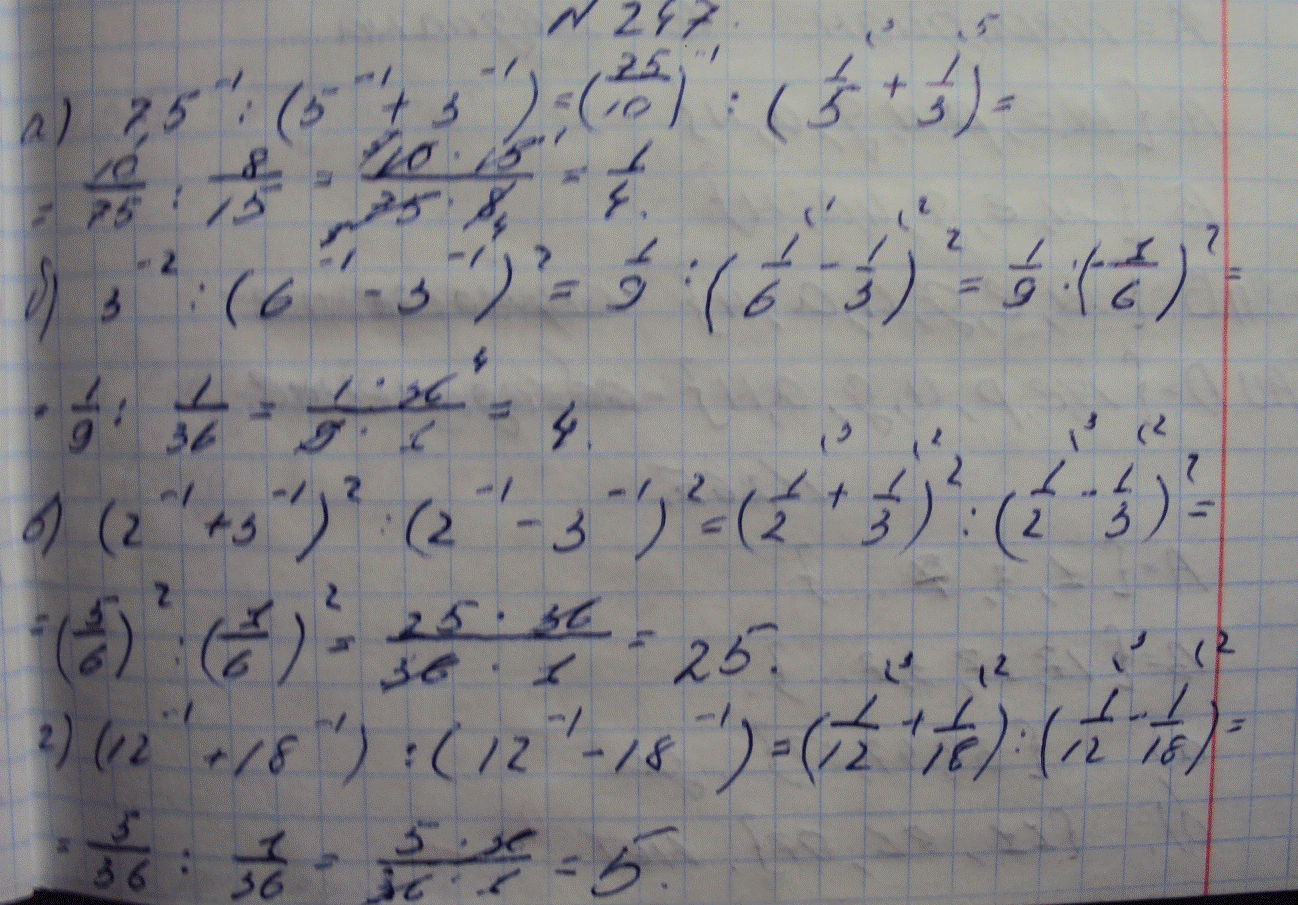 № 247.
а) 7,5⁻¹ : (5⁻¹ + 3⁻¹) = (75/10)⁻¹ : (1/5 + 1/3) =
= 10/75 : 8/15 = 10 · 15 / 75 · 8 = 1/4.
б) 3⁻² : (6⁻¹ - 3⁻¹)² = 1/9 : (1/6 - 1/3)² = 1/9 : (-1/6)² =
= 1/9 : 1/36 = 1 · 36 / 9 · 1 = 4.
в) (2⁻¹ + 3⁻¹)² : (2⁻¹ - 3⁻¹)² = (1/2 + 1/3)² : (1/2 - 1/3)² =
= (5/6)² : (1/6)² = 25 · 36 / 36 · 1 = 25.
г) (12⁻¹ + 18⁻¹) : (12⁻¹ - 18⁻¹) = (1/12 + 1/18) : (1/12 - 1/18) =
= 5/36 : 1/36 = 5 · 36 / 36 · 1 = 5.